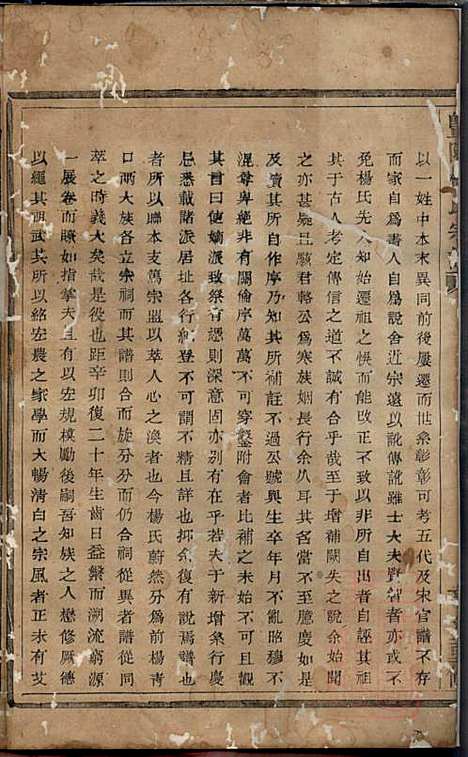 以一姓中本末異同前後屢遷而世系彰彰可考五代及宋官譜不存
而家自爲書人自爲說舍近宗遠以訛傳訛雖士大夫賢智者亦或不
免楊氏先人知始遷祖之悞而能改正不致以非所自出者自誣其祖
其于古人考定傳信之道不誠有合乎哉至于增補闕失之說余始聞
之亦甚疑且駭君輅公爲寒族姻長行余久耳其名當不至臆度如是
及讀其所自作序乃知其所補註不過公號與生卒年月不亂昭穆不
混尊卑絶非有關倫序萬萬不可穿鑿附會者比補之未始不可且觀
其言曰使嫡派致祭有憑而行慶
其言曰使嫡派致祭有憑則深意固亦別有在乎若夫于新增粲行慶
忌悉載賭派居址各行係登不可謂不精且詳也抑余復有說焉譜也
者所以聯本支篤宗盟以萃人心之渙者也今楊氏蔚然分爲前楊靑
口兩大族各立宗祠而其譜則合而旋分分而仍合祠從異者譜從同
萃之時義大矣哉是作也距辛卯復二十年生齒日益繁而溯流窮源
一展卷而瞭如指掌夫且有以宏規模勵後嗣吾知族之人懋修厥德
以繩其祖武其所以紹宏農之家學而大暢清白之宗風者正未有艾